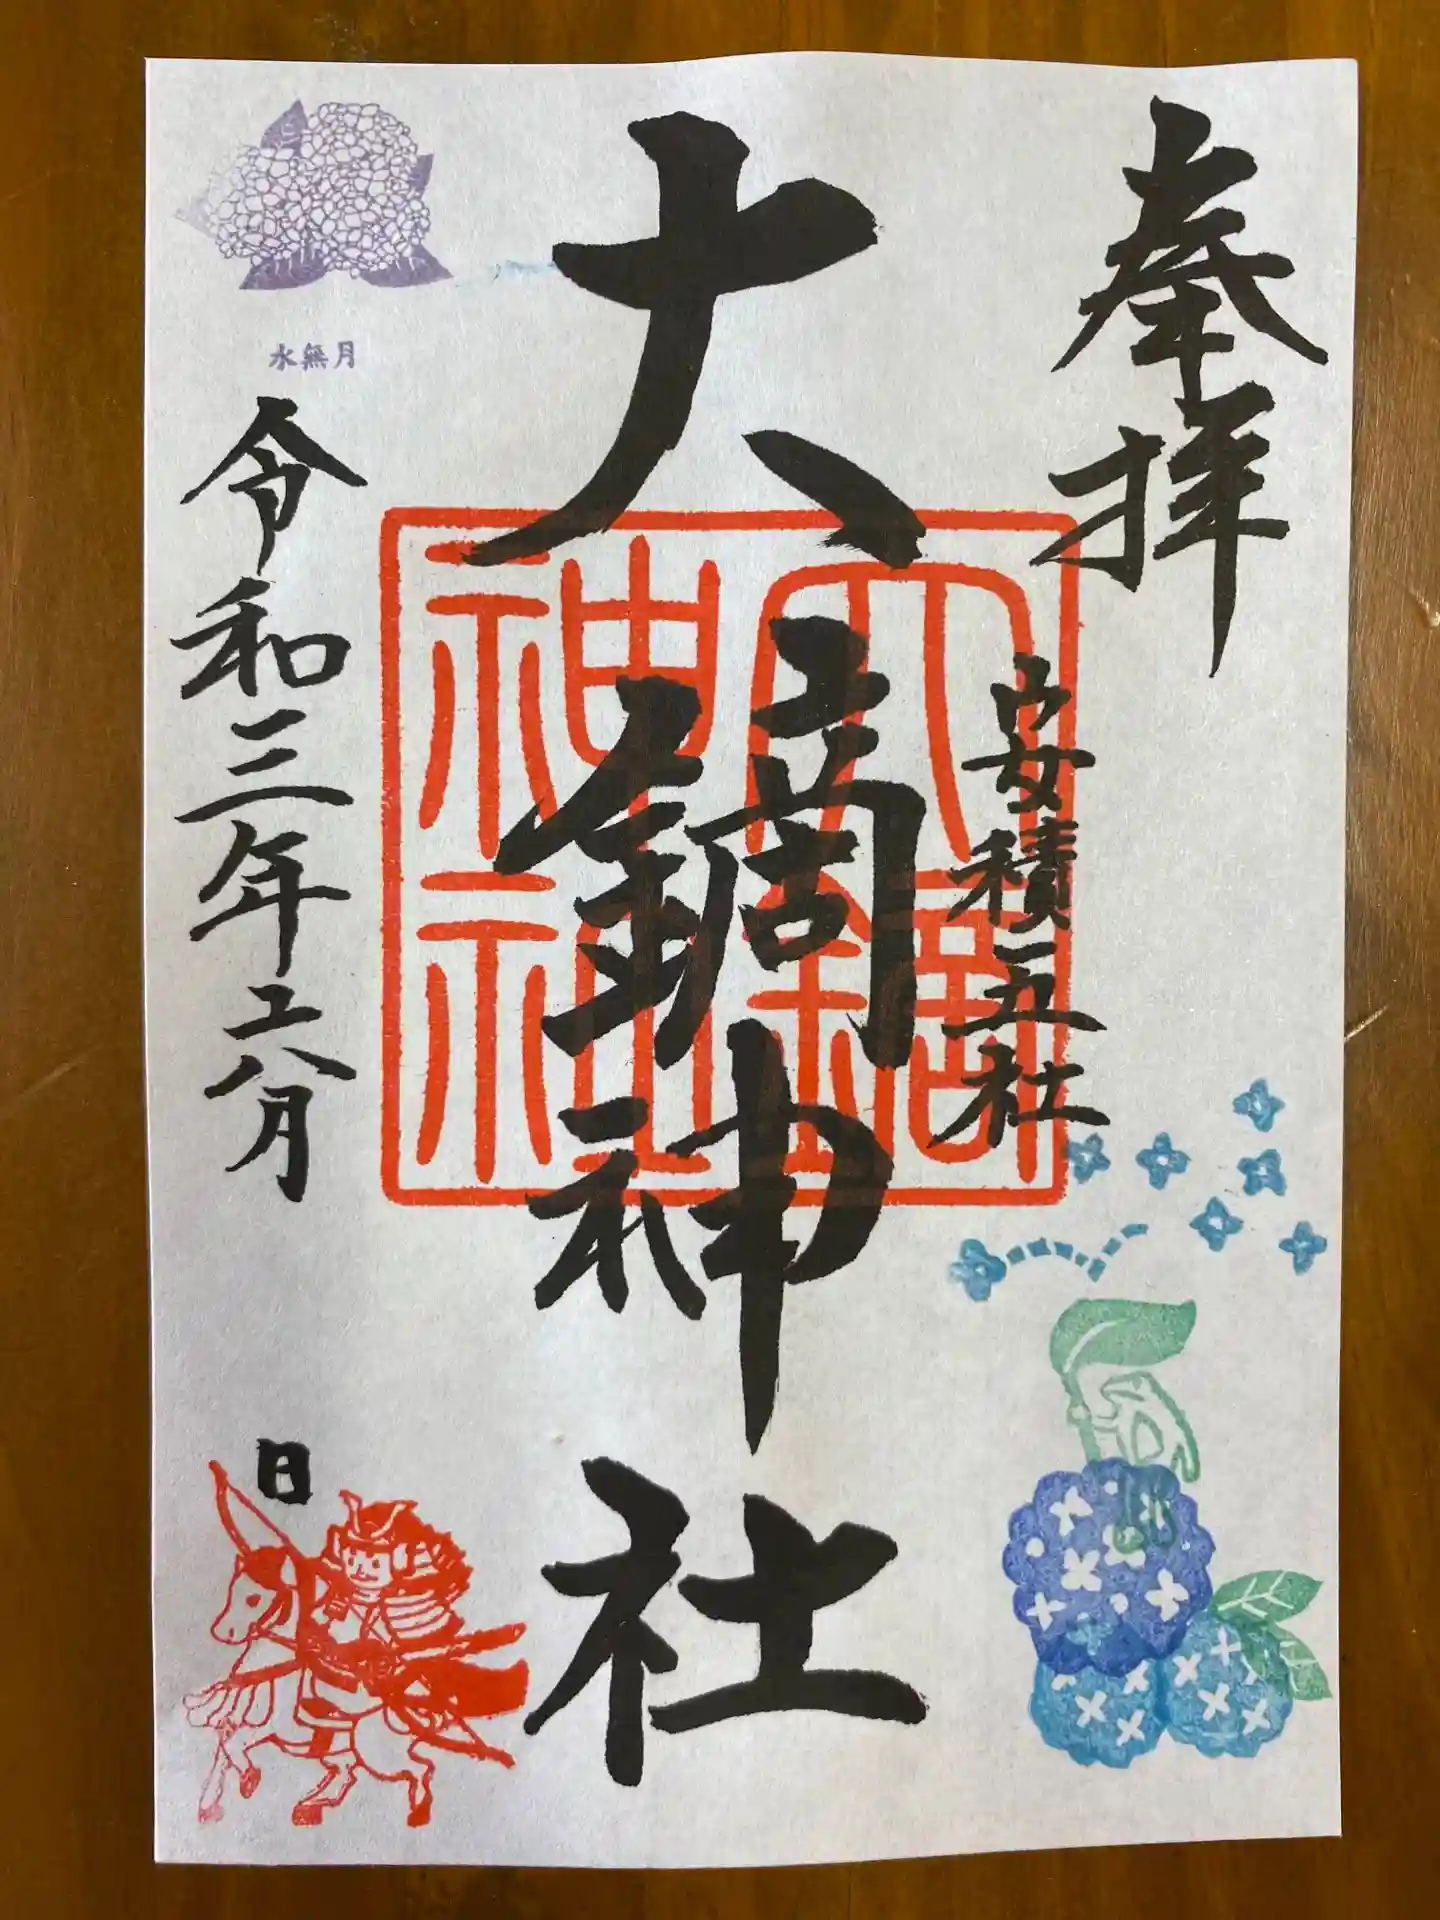 奉拝
安積五社
大鏑神社
大鏑
神社
水無月
令和三年六月
日